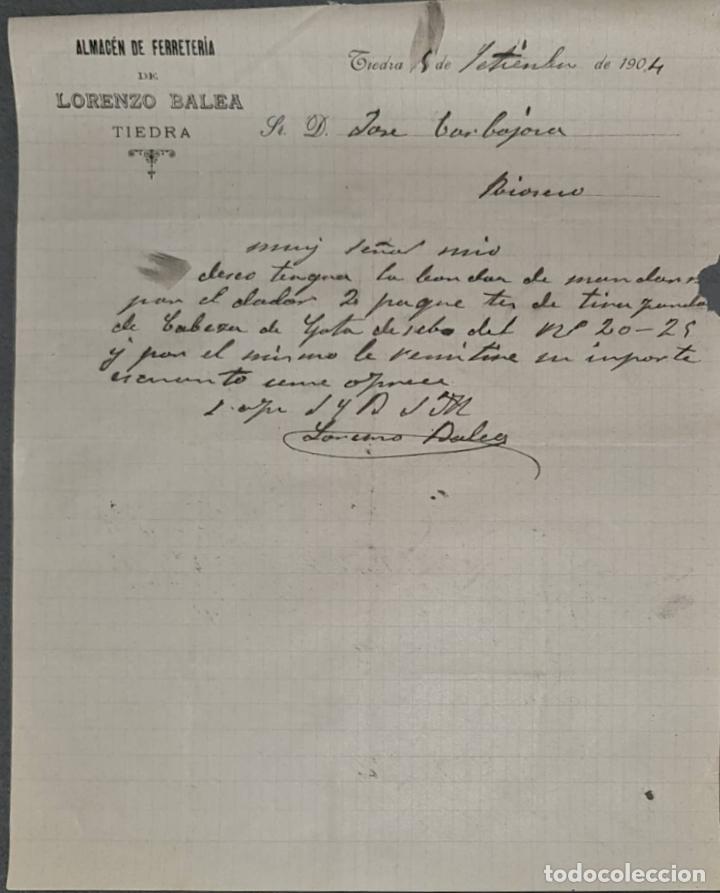 ALMACÉN DE FERRETERÍA
DE
LORENZO BALEA
TIEDRA
Tiedra 5 de Setienbre de 1904
Sr. D. Jose Carbajosa
Rioseco
muy señor mio
deseo tengua la bondar de mandar
por el dador 2 paque tes de
de Cabeza de Gota de sebo del Nº 20-25
y por el mismo le remitire su importe
se ofrece
S S Q B S M
Lorenzo Balea
todocoleccion